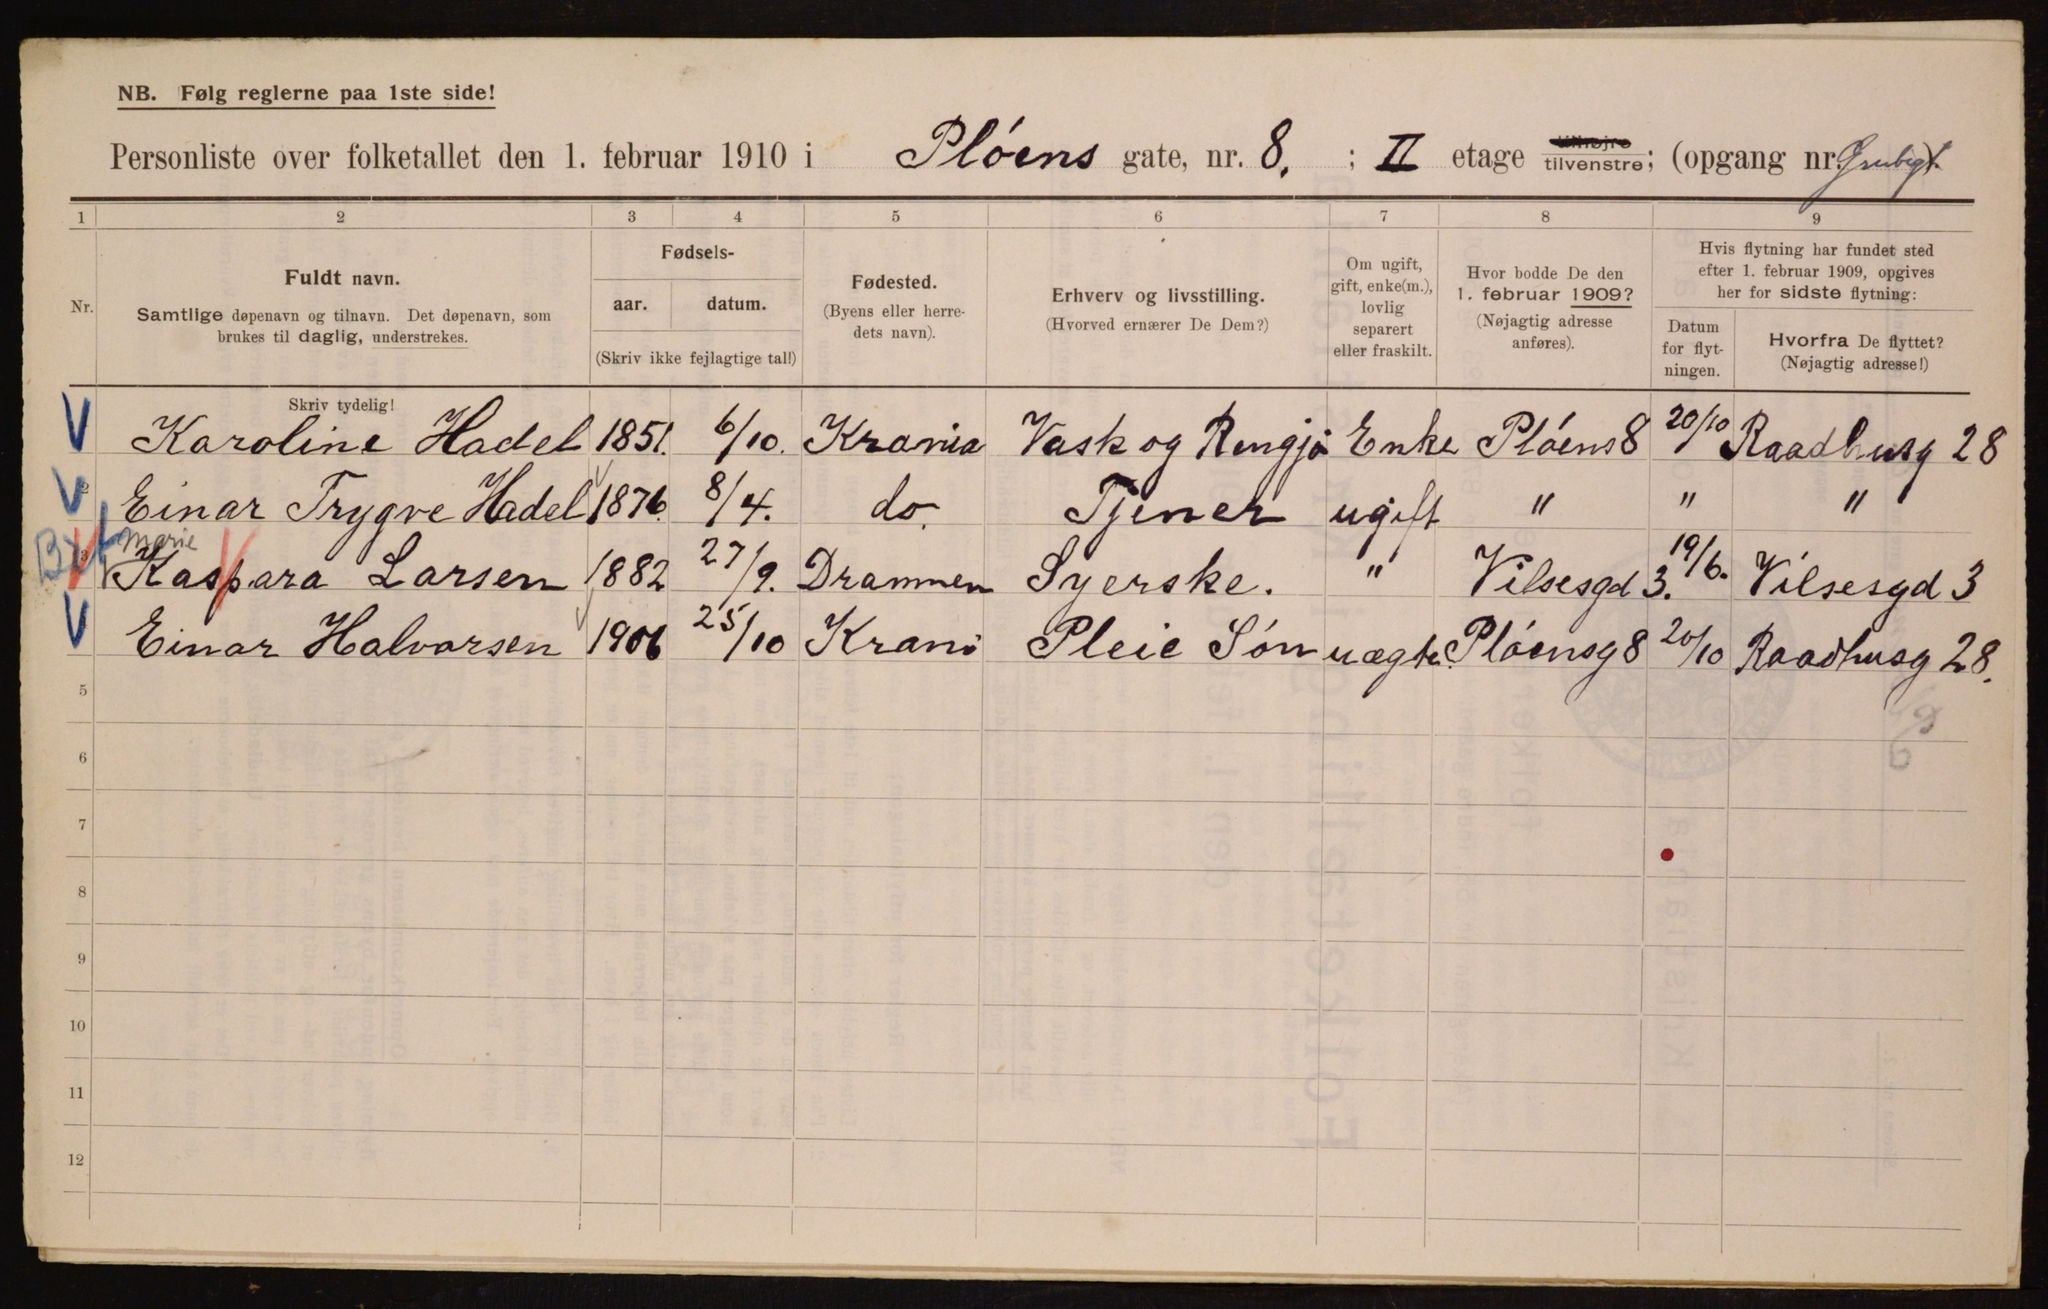 NB. Følg reglerne paa 1ste side!
Personliste over folketallet den 1. februar 1910 i Plóens gate, nr. 8. ; II etage tilhøjre tilvenstre; (opgang nr.
1 2 3 4 5 6 7 8 9
Nr.
Fuldt navn.
Samtlige døpenavn og tilnavn. Det døpenavn, som
brukes til daglig, understrekes.
Fødsels-
aar. datum.
(Skriv ikke fejlagtige tal!)
Fødested.
(Byens eller herre-
dets navn).
Erhverv og livsstilling.
(Hvorved ernærer De Dem?)
Om ugift,
gift, enke(m.),
lovlig
separert
eller fraskilt.
Hvor bodde De den
1. februar 1909?
(Nøjagtig adresse
anføres).
Hvis flytning har fundet sted
efter 1. februar 1909, opgives
her for sidste flytning:
Datum
for flyt-
ningen.
Hvorfra De flyttet?
(Nøjagtig adresse!)
Skriv tydelig!
V Karoline Hadel 1851. 6/10. Krania Vask og Rengjø Enke Plóens 8 20/10 Raadhusg 28
V 2 Einar Trygve Hadel 1876. 8/4. do. Tjener ugift " " "
marie
3 Kaspara Larsen 1882 27/9. Drammen Syerske. " Vilsesgd 3. 19/6. Vilsesgd 3
V Einar Halvorsen 1906 25/10 Krani Pleie Són uægte. Plóensg 8 20/10 Raadhusg 28.
5
6
7
8
9
10
11
12